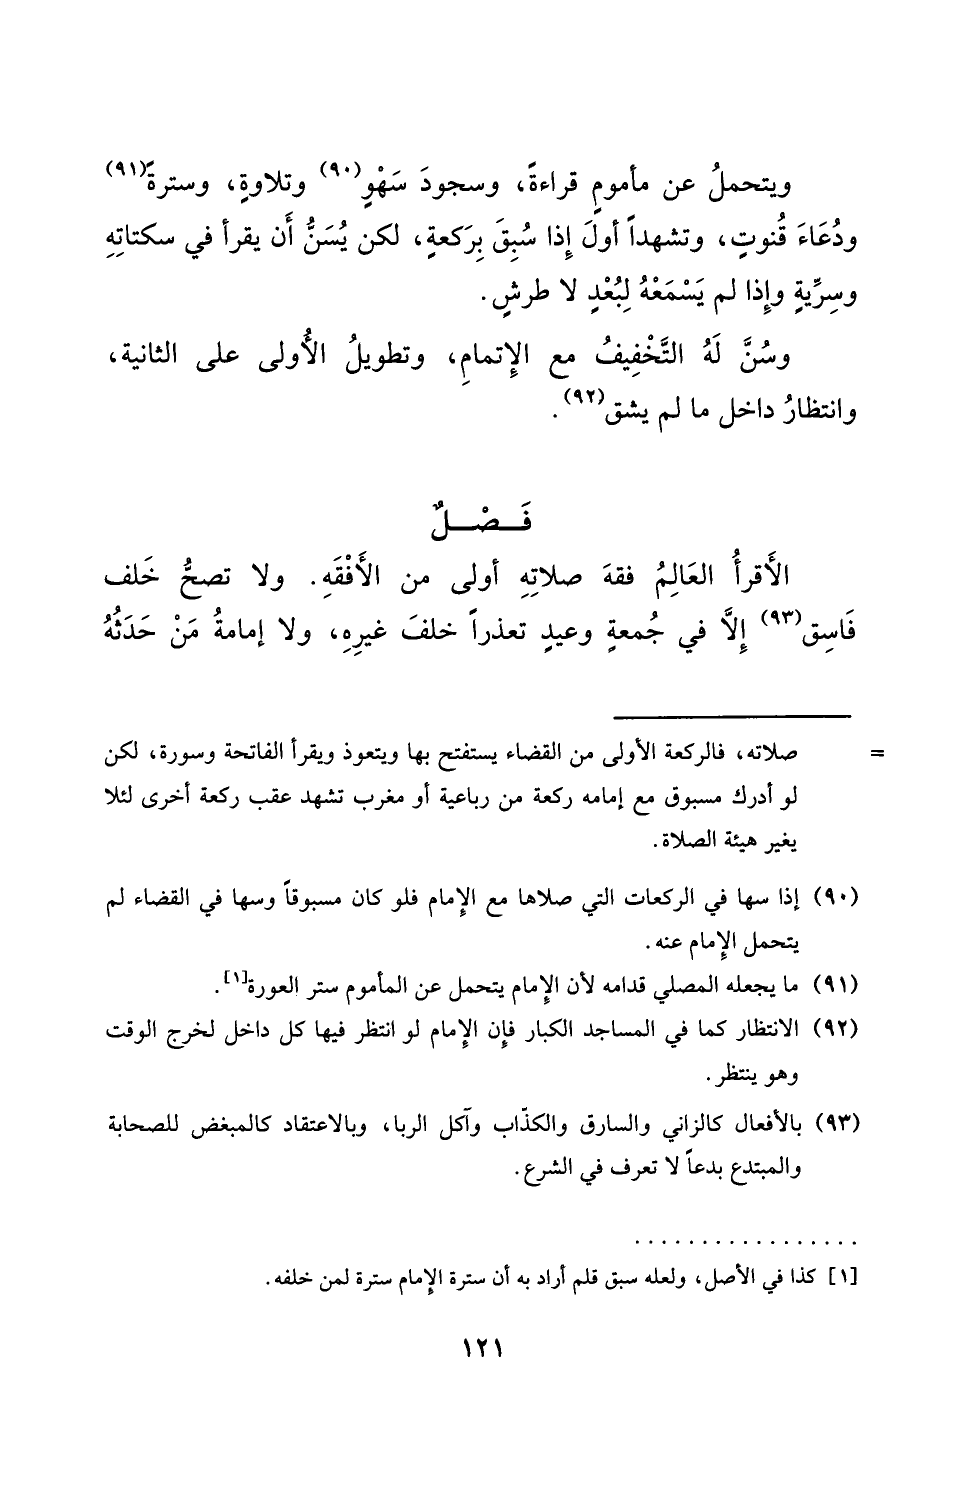 ويتحملُ عن مأمومٍ قراءةً، وسجودَ سَهْوٍ(٩٠) وتلاوةٍ، وسترةً(٩١)
ودُعَاءَ قُنوتٍ، وتشهداً أولَ إِذا سُبِقَ بِرَكعةٍ، لكن يُسَنُّ أَن يقرأ في سكتاتِهِ
وسِرِّيةٍ وإِذا لم يَسْمَعْهُ لِبُعْدٍ لا طرشٍ.
وسُنَّ لَهُ التَّخْفِيفُ مع الإِتمامِ، وتطويلُ الأُولى على الثانية،
وانتظارُ داخل ما لم يشق(٩٢).
فَـصْـلٌ
الأَقرأُ العَالِمُ فقهَ صلاتِهِ أولى من الأَفْقَهِ. ولا تصحُّ خَلف
فَاسِق(٩٣) إِلَّا في جُمعةٍ وعيدٍ تعذراً خلفَ غيرِهِ، ولا إمامةُ مَنْ حَدَثُهُ
= صلاته، فالركعة الأولى من القضاء يستفتح بها ويتعوذ ويقرأ الفاتحة وسورة، لكن
لو أدرك مسبوق مع إمامه ركعة من رباعية أو مغرب تشهد عقب ركعة أخرى لئلا
يغير هيئة الصلاة.
(٩٠) إذا سها في الركعات التي صلاها مع الإِمام فلو كان مسبوقاً وسها في القضاء لم
يتحمل الإِمام عنه.
(٩١) ما يجعله المصلي قدامه لأن الإِمام يتحمل عن المأموم ستر العورة[١].
(٩٢) الانتظار كما في المساجد الكبار فإن الإِمام لو انتظر فيها كل داخل لخرج الوقت
وهو ينتظر.
(٩٣) بالأفعال كالزاني والسارق والكذّاب وآكل الربا، وبالاعتقاد كالمبغض للصحابة
والمبتدع بدعاً لا تعرف في الشرع.
. . . . . . . . . . . . . . . . .
[١] كذا في الأصل، ولعله سبق قلم أراد به أن سترة الإِمام سترة لمن خلفه.
١٢١